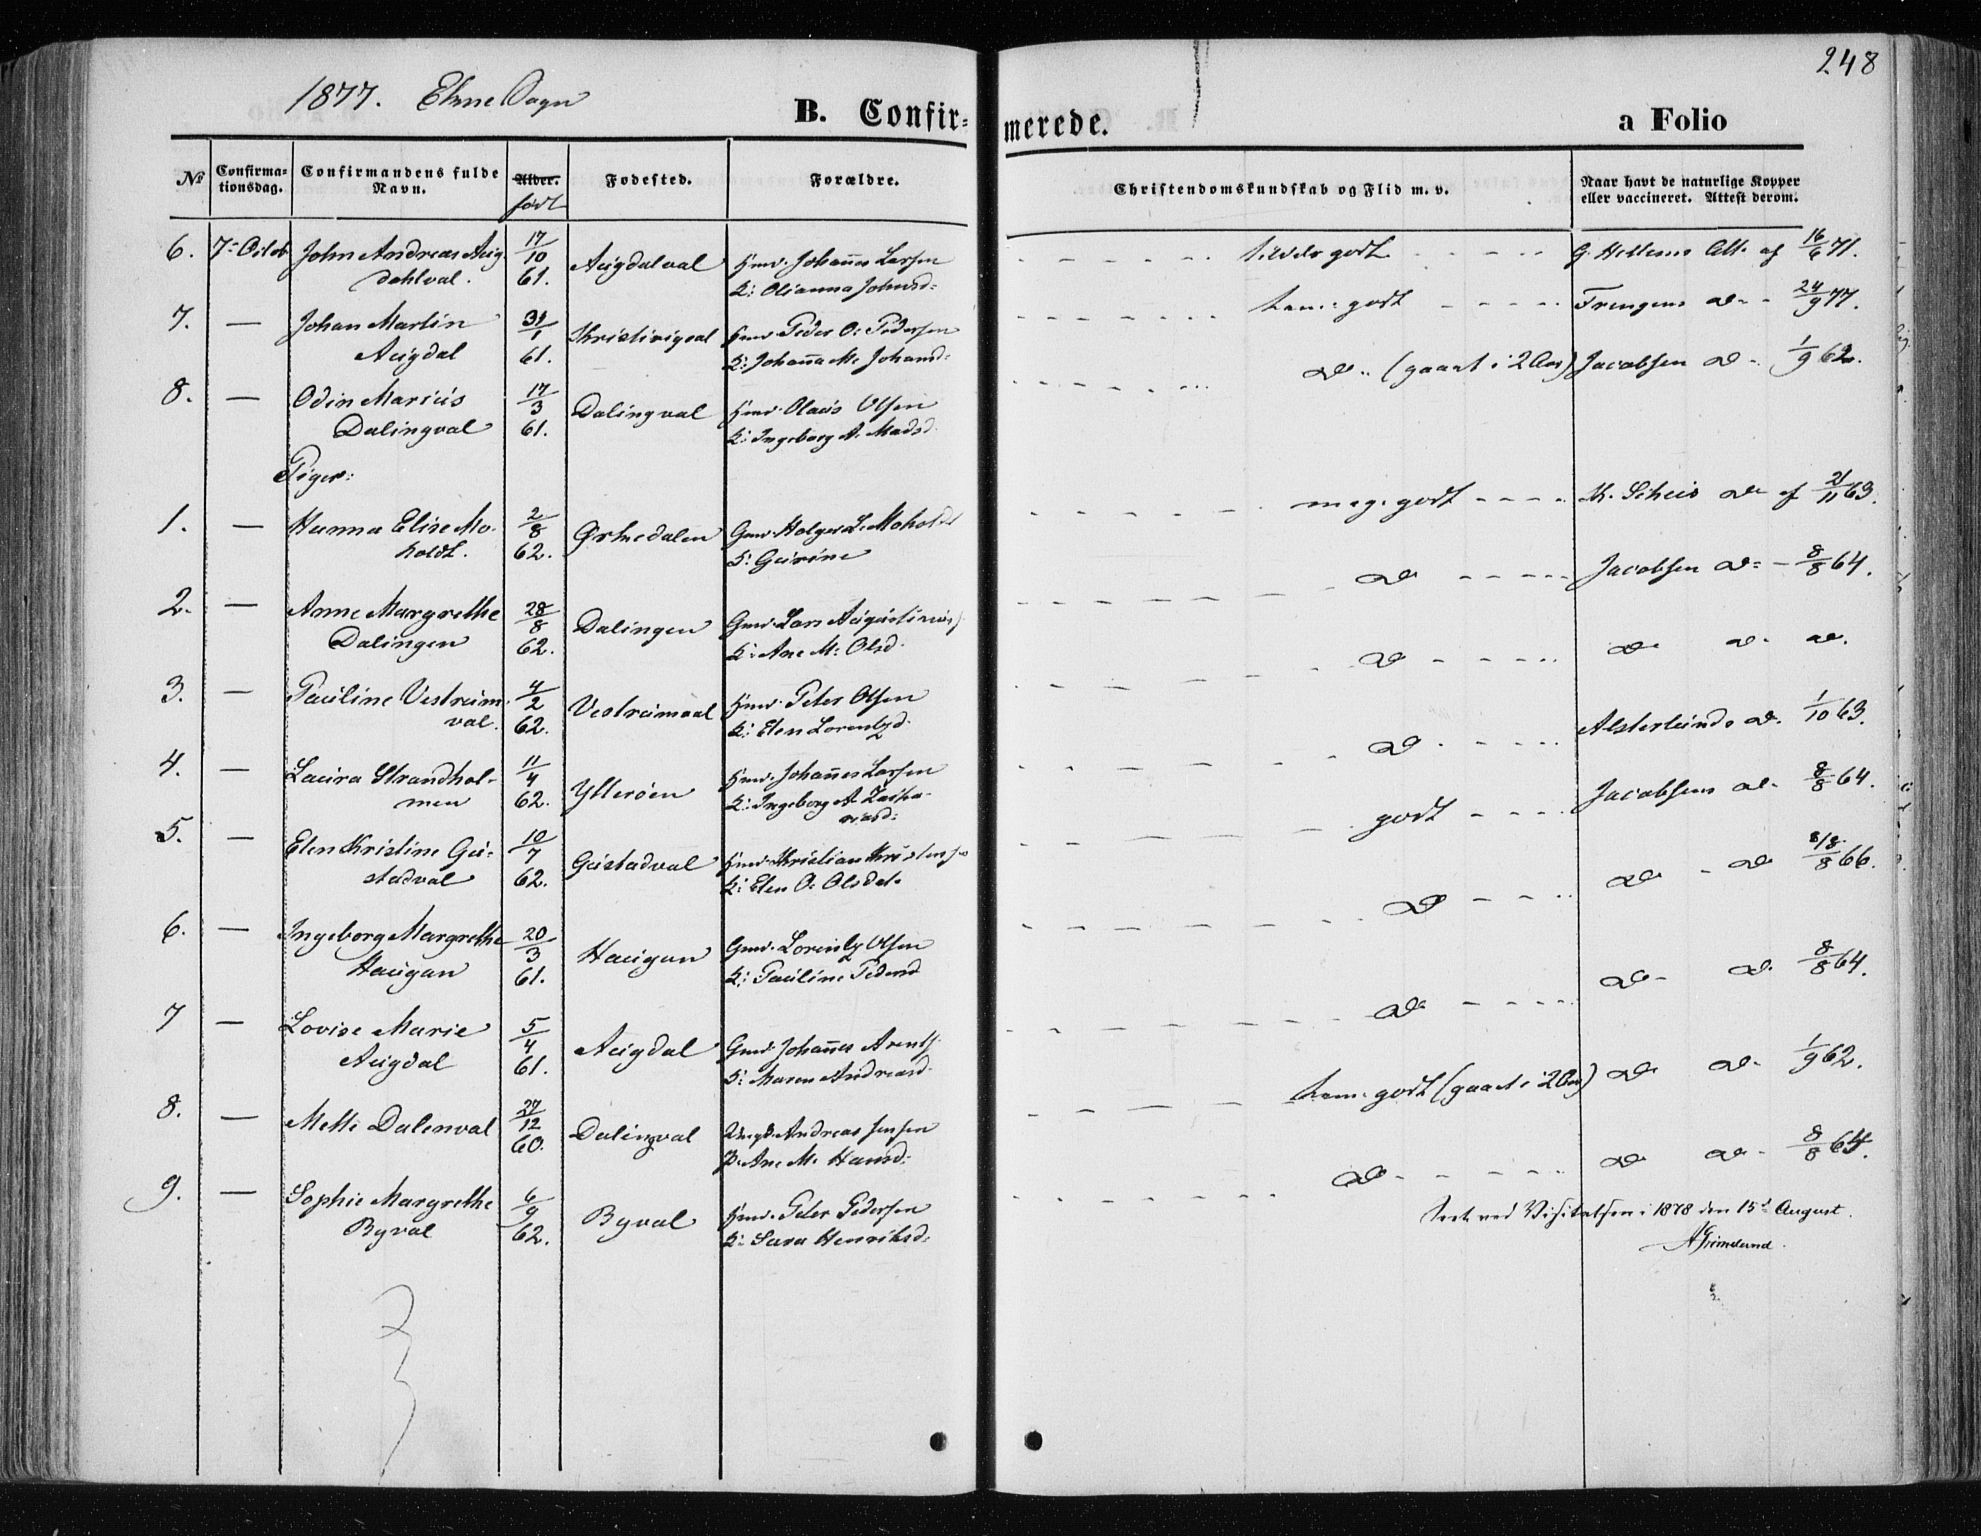 248
1877. Ekne Sogn
B. Confirmerede.
a Folio
No
Confirmationsdag.
Confirmandens fulde Navn.
Alder. født
Fødested.
Forældre.
Christendomskundskab og Flid m. v.
Naar havt de naturlige Kopper eller vaccineret. Attest derom.
6. 7de Octob John Andreas Aug 17/10 Augdalval Hmd. Johannes Larsen tildels godt G. Hellems Att. af 16/6 71.
dahlval. 61. K: Olianna Johnsd:
7. — Johan Martin 31/1 Kristivigval Hmd. Peder O. Pedersen tem: godt Frengens do 24/9 77.
Augdal 61. K: Johanna M. Johansd:
8. — Odin Marius 17/3 Dalingval Hmd. Olaus Olsen do (gaaet i 2 Aar) Jacobsen do 1/9 62.
Dalingval 61. K: Ingeborg A. Madsd.
Piger:
1. — Hanna Elise Mo- 2/8 Ørkedalen Gmd. Holger L. Moholdt meg. godt K. Scheis do af 21/11 63.
holdt. 62. K: Gurine
2. — Anne Margrethe 28/8 Dalingen Gmd. Lars Augustinus do Jacobsen do 8/8 64.
Dalingen 62. K: Ane M. Olsd.
3. — Pauline Vestrum 4/2 Vestrumval Hmd. Peter Olsen do do do do.
val. 62. K: Elen Lorentzd.
4. — Laura Strandhol- 11/4 Ytterøen Hmd. Johannes Larsen do Alsterlunds do. 1/10 63.
men 62. K: Ingeborg A. Zacha-
riasd:
5. — Elen Kristine Gu- 10/7 Gustadval Hmd. Kristian Kristensen godt Jacobsens do 8/8 64.
stadval 62. K: Elen O. Olsdat.
6. — Ingeborg Margrethe 20/3 Haugan Gmd. Lorentz Olsen do do do 8/8 66.
Haugan 61. K: Pauline Pedersd
7 — Lovise Marie 5/4 Augdal Gmd. Johannes Arents. do do do 8/8 64.
Augdal 61. K: Maren Andreasd.
8. — Mette Dalenval 27/12 Dalingval Ungk. Andreas Jensen tem: godt (gaaet i 2 Aar) do do 1/9 62.
60. P. Ane M. Hansd:
9. — Sophie Margrethe 6/9 Byval Hmd. Peter Pedersen do do do 8/8 64.
Byval 62. K: Sara Henriksd:
Seet ved Visitatsen i 1878 den 15de August.
A Grimelund.